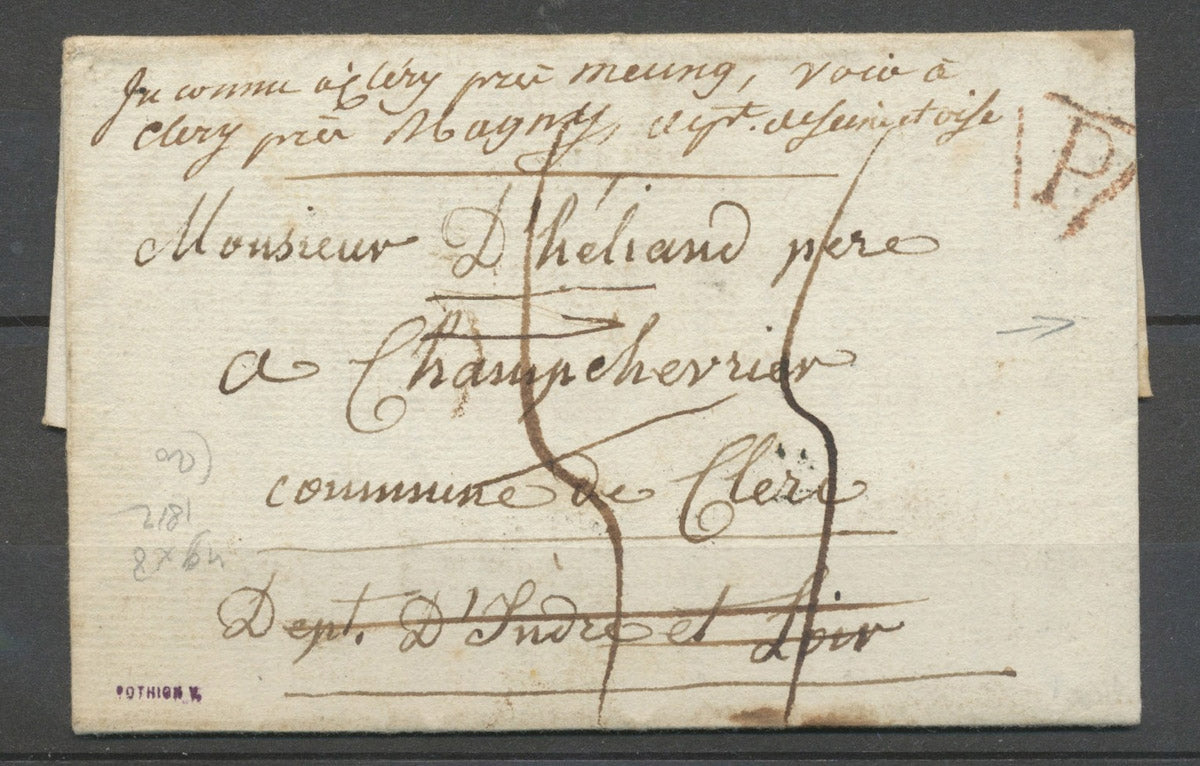 Inconnu à Cléry près meung, voir à
Clery près Magny, dept. de seine et oise
P
Monsieur D'héliand pere
a Champchevrier
commune de Cleré
Dept. D'Indre et Loir
1812
POTHION